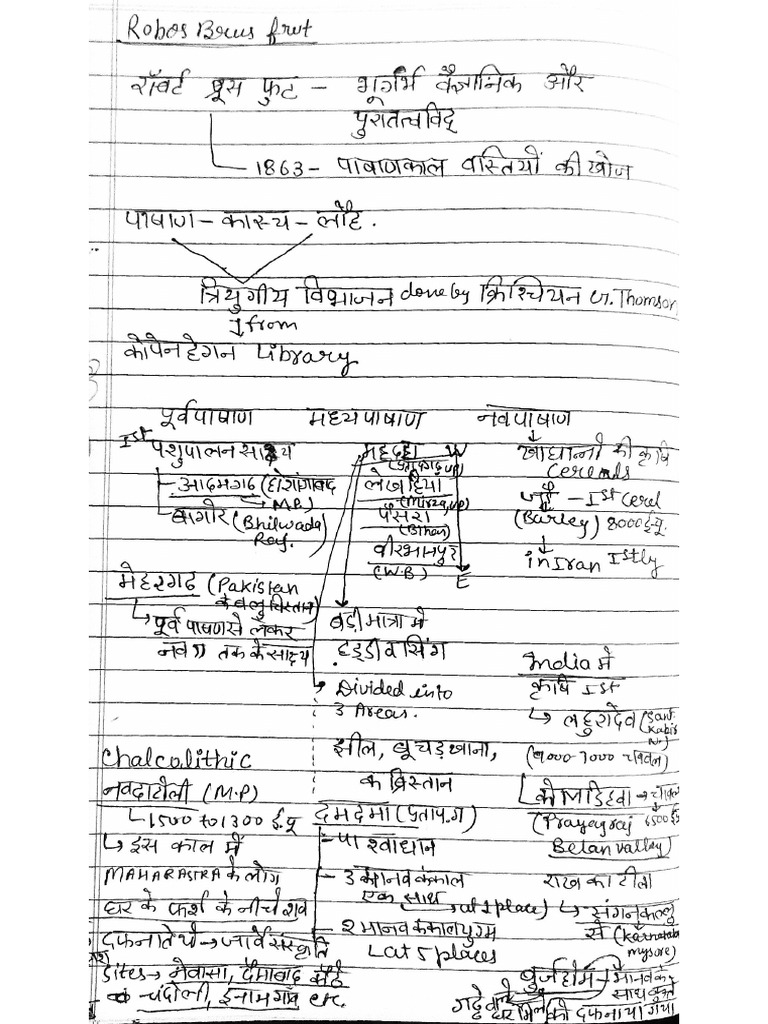 Robos Brus frut
रॉबर्ट ब्रूस फुट - भूगर्भ वैज्ञानिक और
पुरातत्वविद्
1863 - पाषाणकाल बस्तियों की खोज
पाषाण - कास्य - लौह .
त्रियुगीय विभाजन done by क्रिश्चियन J. Thomson
from
कोपेनहेगन Library
पूर्वपाषाण मध्यपाषाण नवपाषाण
Ist पशुपालन साक्ष्य
आदमगढ़ (होशंगाबाद
M.P.)
बागोर (Bhilwada
Raj.
महदहा W
(प्रतापगढ़ UP)
लेखहिया
(Mirza. up)
पैसरा
(Bihar)
वीरभानपुर
(W.B) E
खाद्यानो की कृषि
cereals
जौ - Ist cerel
(Barley) 8000 ई.पू.
in Iran Istly
मेहरगढ़ (Pakistan
के बलुचिस्तान)
पूर्व पाषाण से लेकर
नव " तक के साक्ष्य
बड़ी मात्रा में
हड्डी व सिंग
Divided into
3 Areas.
झील, बूचड़खाना,
कब्रिस्तान
India में
कृषि Ist
लहुरादेव (Sant
Kabir
Nr)
(9000-7000 चावल)
कोलडिहवा → चावल
(Prayagraj 6500 ई.पू
Belan valley)
Chalcolithic
नवदाटोली (M.P)
1500 to 1300 ई.पू
इस काल में
MAHARASTRA के लोग
घर के फर्श के नीचे शव
दफनाते थे → जोर्वे संस्कृति
sites → नेवासा, दैमाबाद
चंदोली, इनामगाँव etc.
दमदमा (प्रतापग)
पाश्वाधान
3 मानव कंकाल
एक साथ
at 1 place)
2 मानव कंकाल युग्म
at 5 places
राख का टीला
संगनकल्लु
से (Karnataka
mysore)
बुर्जहोम - मानव के
साथ कुत्ते
गड्ढे वाले
घर मिले को दफनाया गया